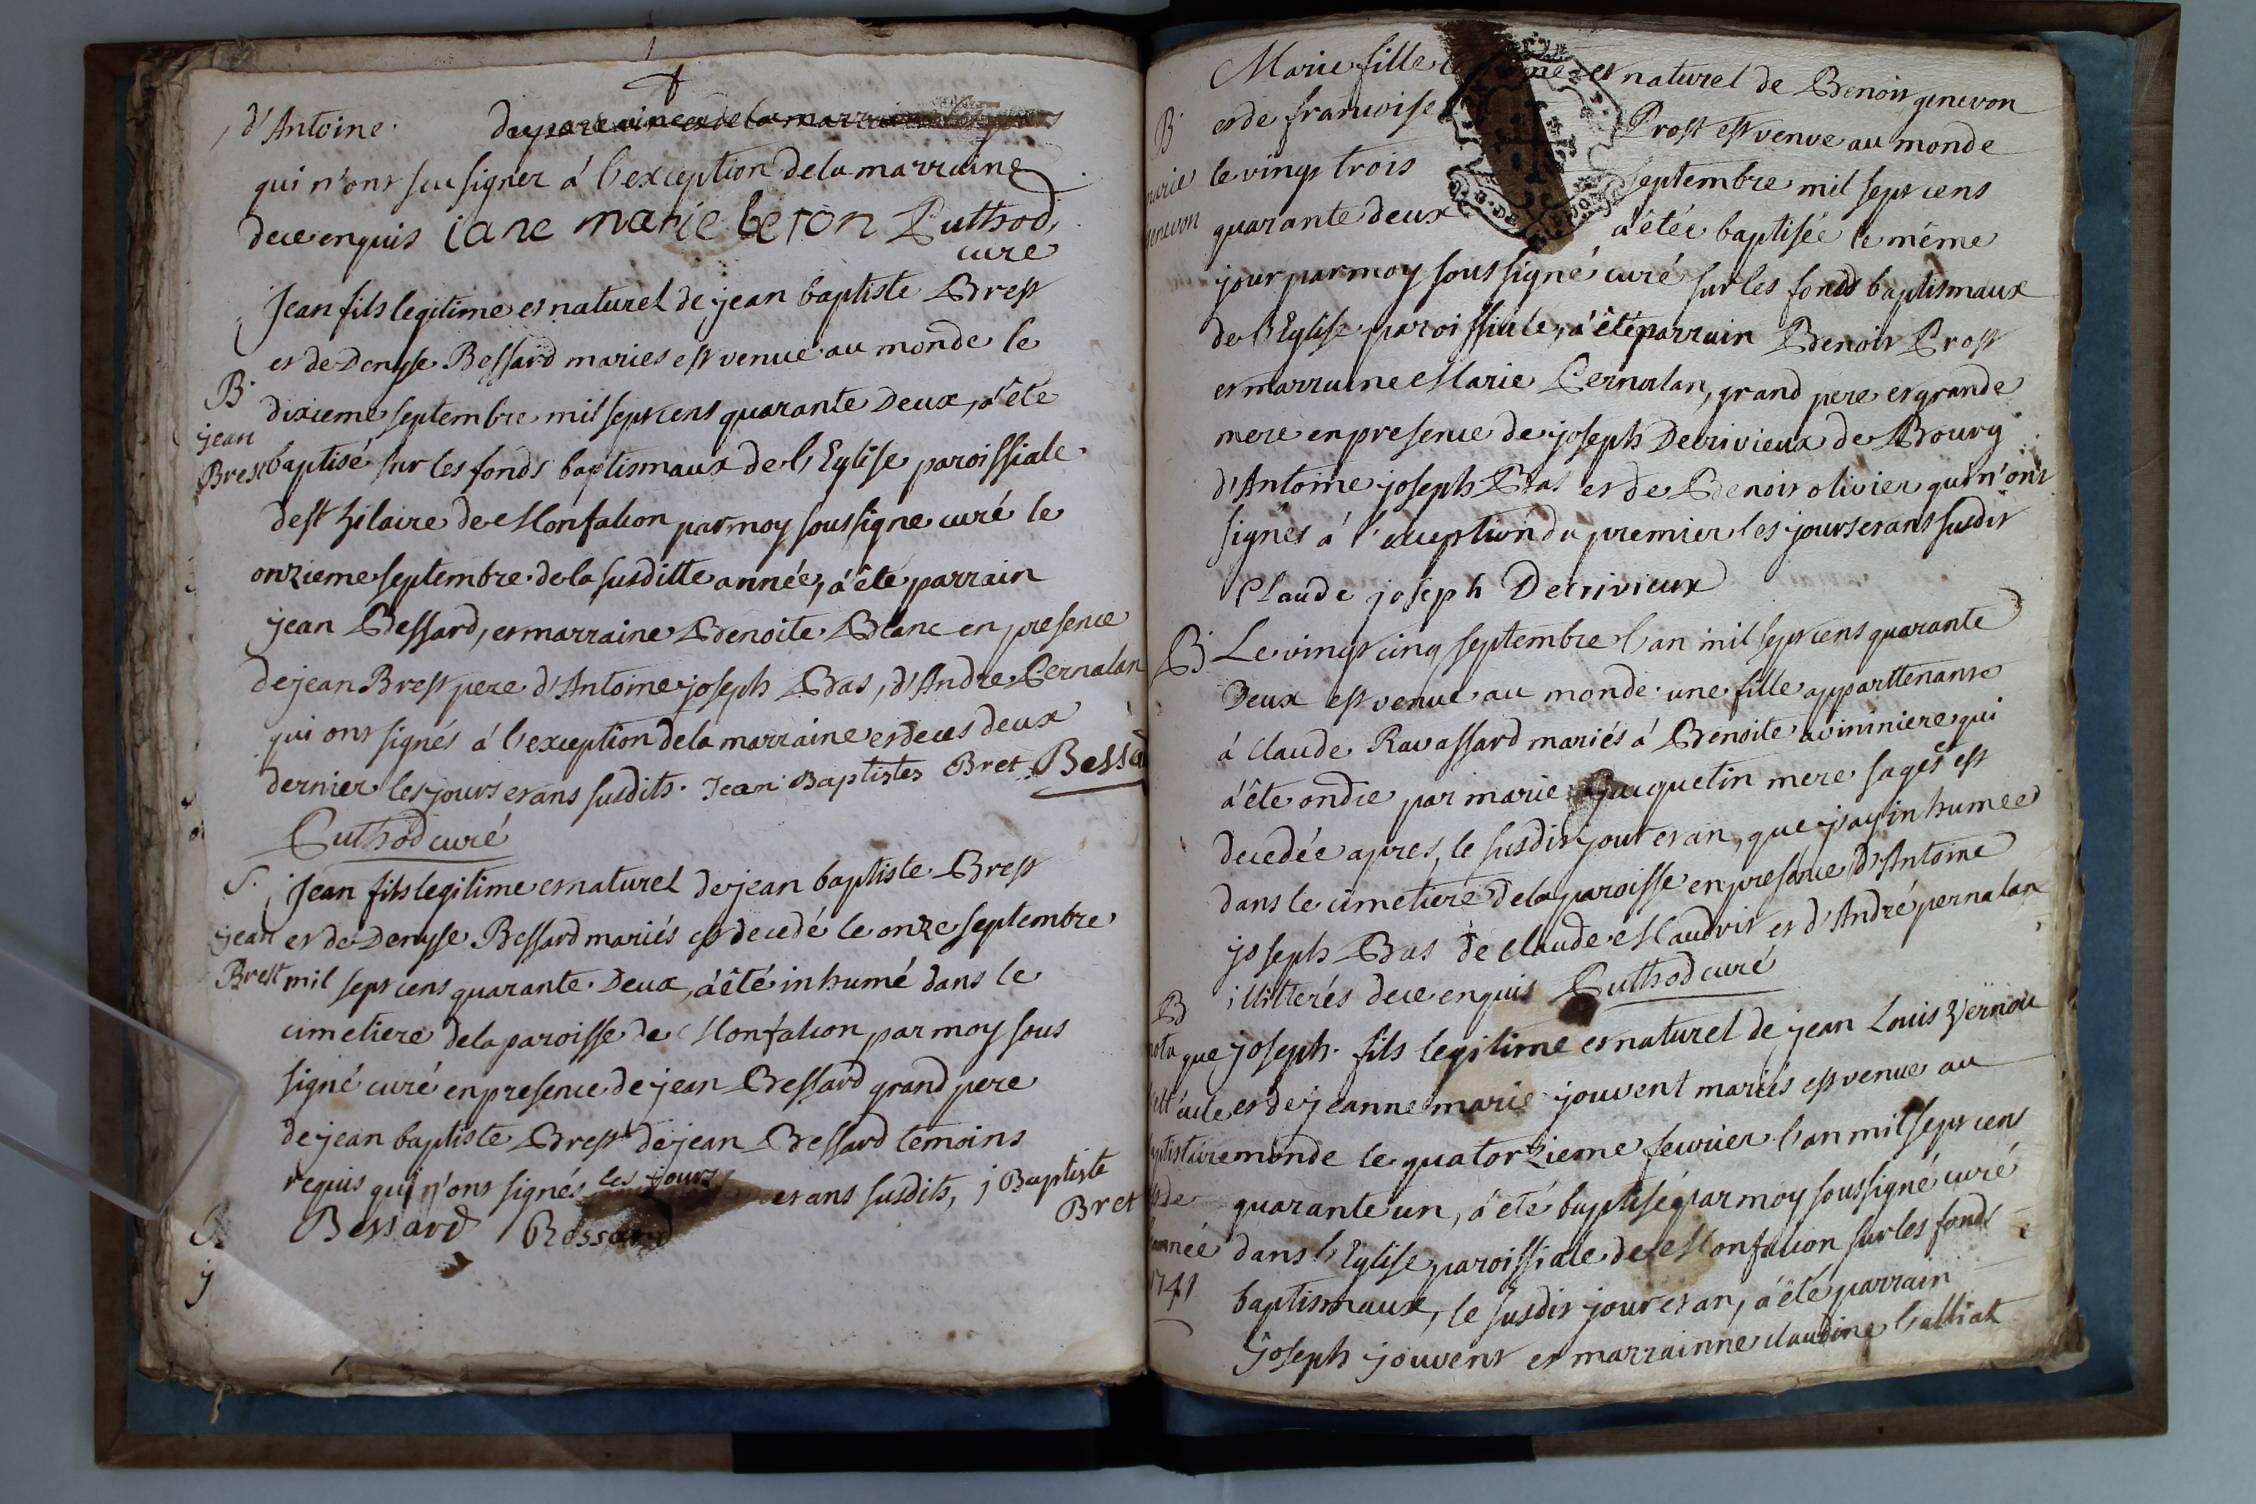 d'Antoine. du parrain et de la marraine
qui n'ont sçu signer á l'exception de la marraine
de ce enquis iane marie beron Cuthod,
curé
Jean fils legitime et naturel de jean baptiste Brest
et de Denyse Bessard maries est venue au monde le
B
dixieme septembre mil sept cens quarante Deux, a'été
jean
Brest baptisé sur les fonds baptismaux de l'Eglise paroissiale
de st hilaire de Monfalcon par moy soussigne curé le
onzieme septembre de la susditte année, a'êté parrain
jean Bessard, et marraine Benoite Blanc en presence
de jean Brest pere d'Antoine joseph Bas, d'Andre Pernalan
qui ont signés á l'exception de la marraine et de ces deux
dernier les jours et ans susdits. Jean Baptistes Bret Bessa
Cuthod curé
S. Jean fils legitime et naturel de jean baptiste Brest
jean et de Denyse Bessard mariés est decedé le onze septembre
Brest mil sept cens quarante Deux, a'êté inhumé dans le
cimetiere de la paroisse de Monfalcon par moy sous
signé curé en presence de jean Bessard grand pere
de jean baptiste Brest de jean Bessard temoins
requis qui n'ont signés les jours et ans susdits, j Baptiste
Bret
Bessard Bessard
Marie fille et naturel de Benoit genevon
B
et de francoise Prost est venue au monde
marie le vingt trois septembre mil sept cens
genevon quarante deux a'étée baptisée le même
jour par moy soussigné curé sur les fonds baptismaux
de l'Eglise paroissiale, a'êté parrain Benoit Prost
et marraine Marie Pernalan, grand pere et grande
mere en presence de joseph Decrivieux de Bourg
d'Antoine joseph Bas et de Benoit olivier qui n'ont
signés á l'exception du premier les jours et ans susdit
Claude joseph Decrivieux
B Le vingt cinq septembre l'an mil sept cens quarante
Deux est venue au monde une fille appartenant
á claude Ravassard mariés á Benoite aviniere qui
a'êté ondie par marie Jacquetin mere sages est
decedée apres, le susdit jour et an, que j'ay inhumee
dans le cimetiere de la paroisse en presence d'Antoine
joseph Bas de claude Maudvit et d'André pernalan
illitterés de ce enquis Cuthod curé
B
nota que joseph fils legitime et naturel de jean Louis Vernou
cett acte et de jeanne marie jouvent mariés est venue au
baptistaire monde le quatorzieme fevrier l'an mil sept cens
est de quarante un, a'été baptisé par moy soussigné curé
l'année dans l'Eglise paroissiale de Monfalcon sur les fonds
1741 baptismaux, le susdit jour et an, a'êté parrain
Joseph jouvent et marrainne claudine Galliat